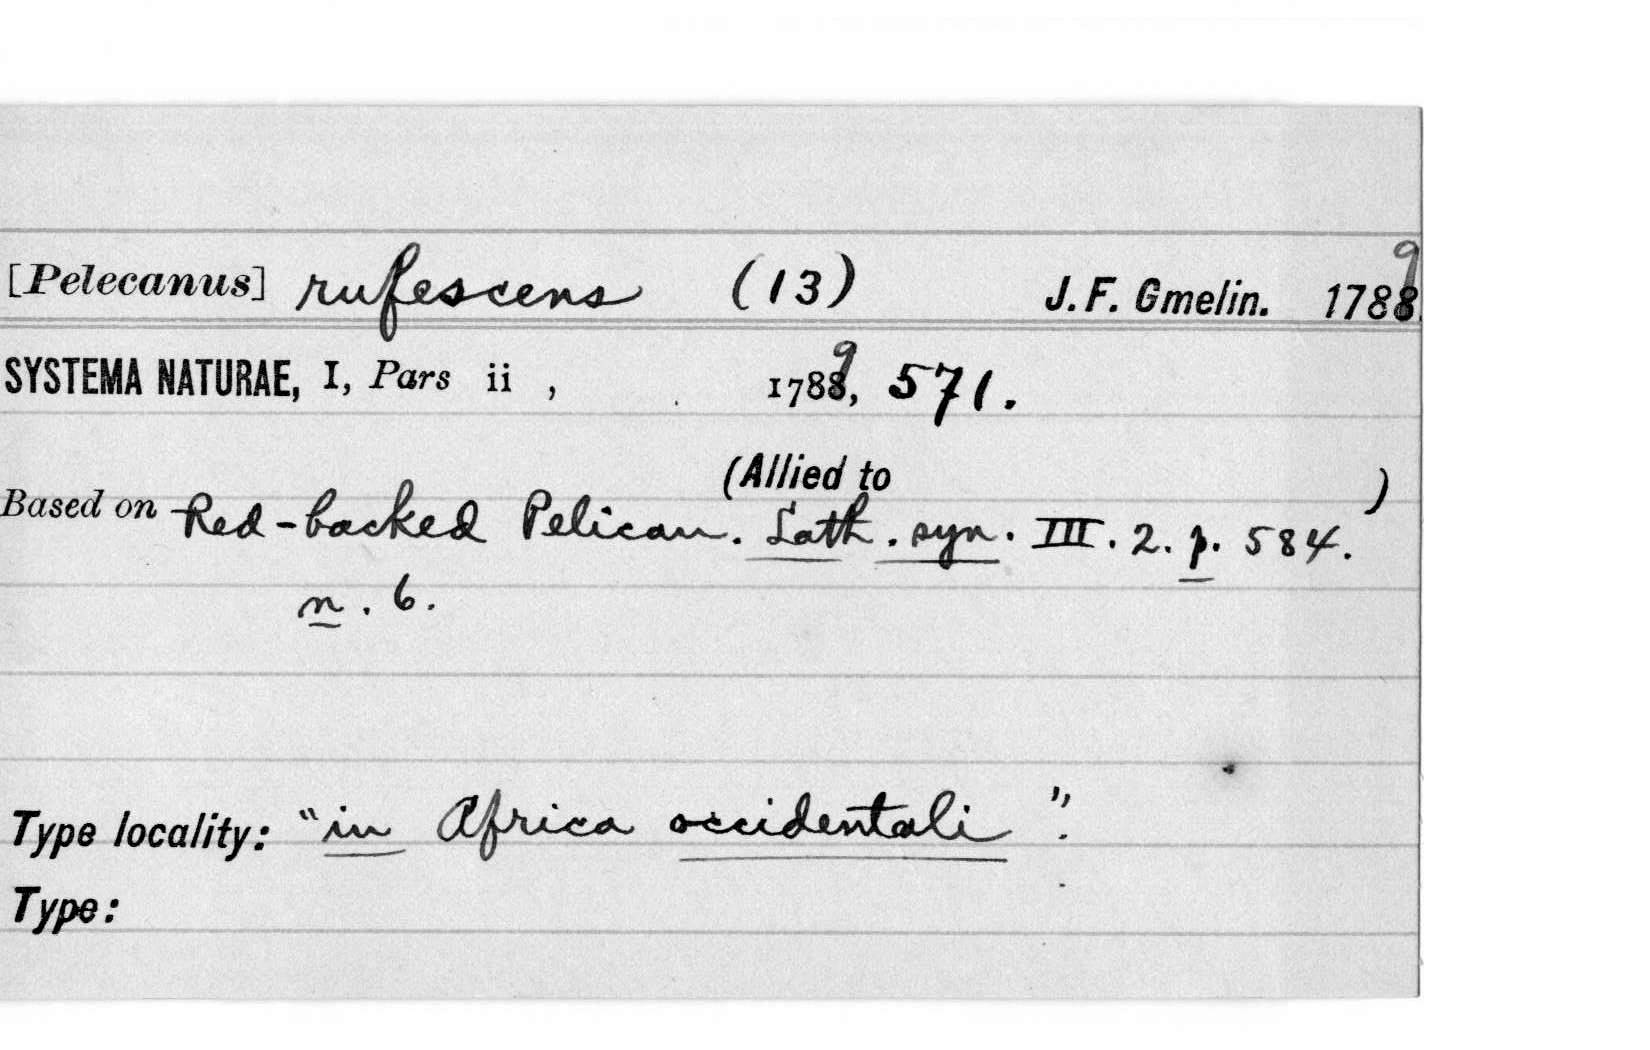 [Pelecanus] rufescens (13) J. F. Gmelin. 1789
SYSTEMA NATURAE, I, Pars ii , 1789, 571.
(Allied to )
Based on Red-backed Pelican. Lath. syn. III. 2. p. 584.
n. 6.
Type locality: "in Africa occidentali".
Type: